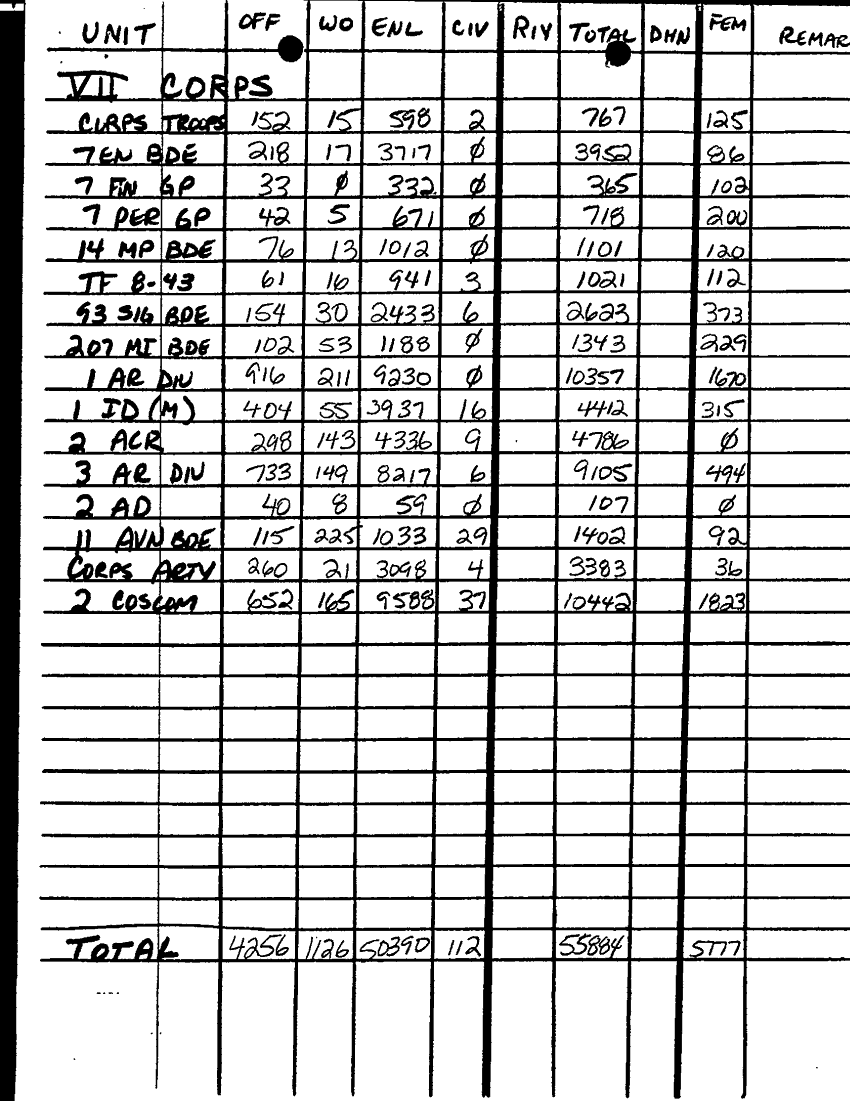 UNIT OFF WO ENL CIV RIY TOTAL DHN FEM REMAR
VII CORPS
CORPS TROOPS 152 15 598 2 767 125
7 EN BDE 218 17 3717 Ø 3952 86
7 FIN GP 33 Ø 332 Ø 365 102
7 PER GP 42 5 671 Ø 718 200
14 MP BDE 76 13 1012 Ø 1101 120
TF 8-43 61 16 941 3 1021 112
93 SIG BDE 154 30 2433 6 2623 373
207 MI BDE 102 53 1188 Ø 1343 229
1 AR DIV 916 211 9230 Ø 10357 1670
1 ID (M) 404 55 3937 16 4412 315
2 ACR 298 143 4336 9 4786 Ø
3 AR DIV 733 149 8217 6 9105 494
2 AD 40 8 59 Ø 107 Ø
11 AVN BDE 115 225 1033 29 1402 92
CORPS ARTY 260 21 3098 4 3383 36
2 COSCOM 652 165 9588 37 10442 1823
TOTAL 4256 1126 50390 112 55884 5777